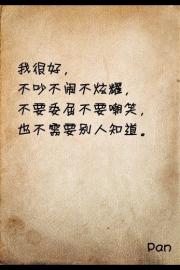 我很好，
不吵不闹不炫耀，
不要委屈不要嘲笑，
也不需要别人知道。
Dan